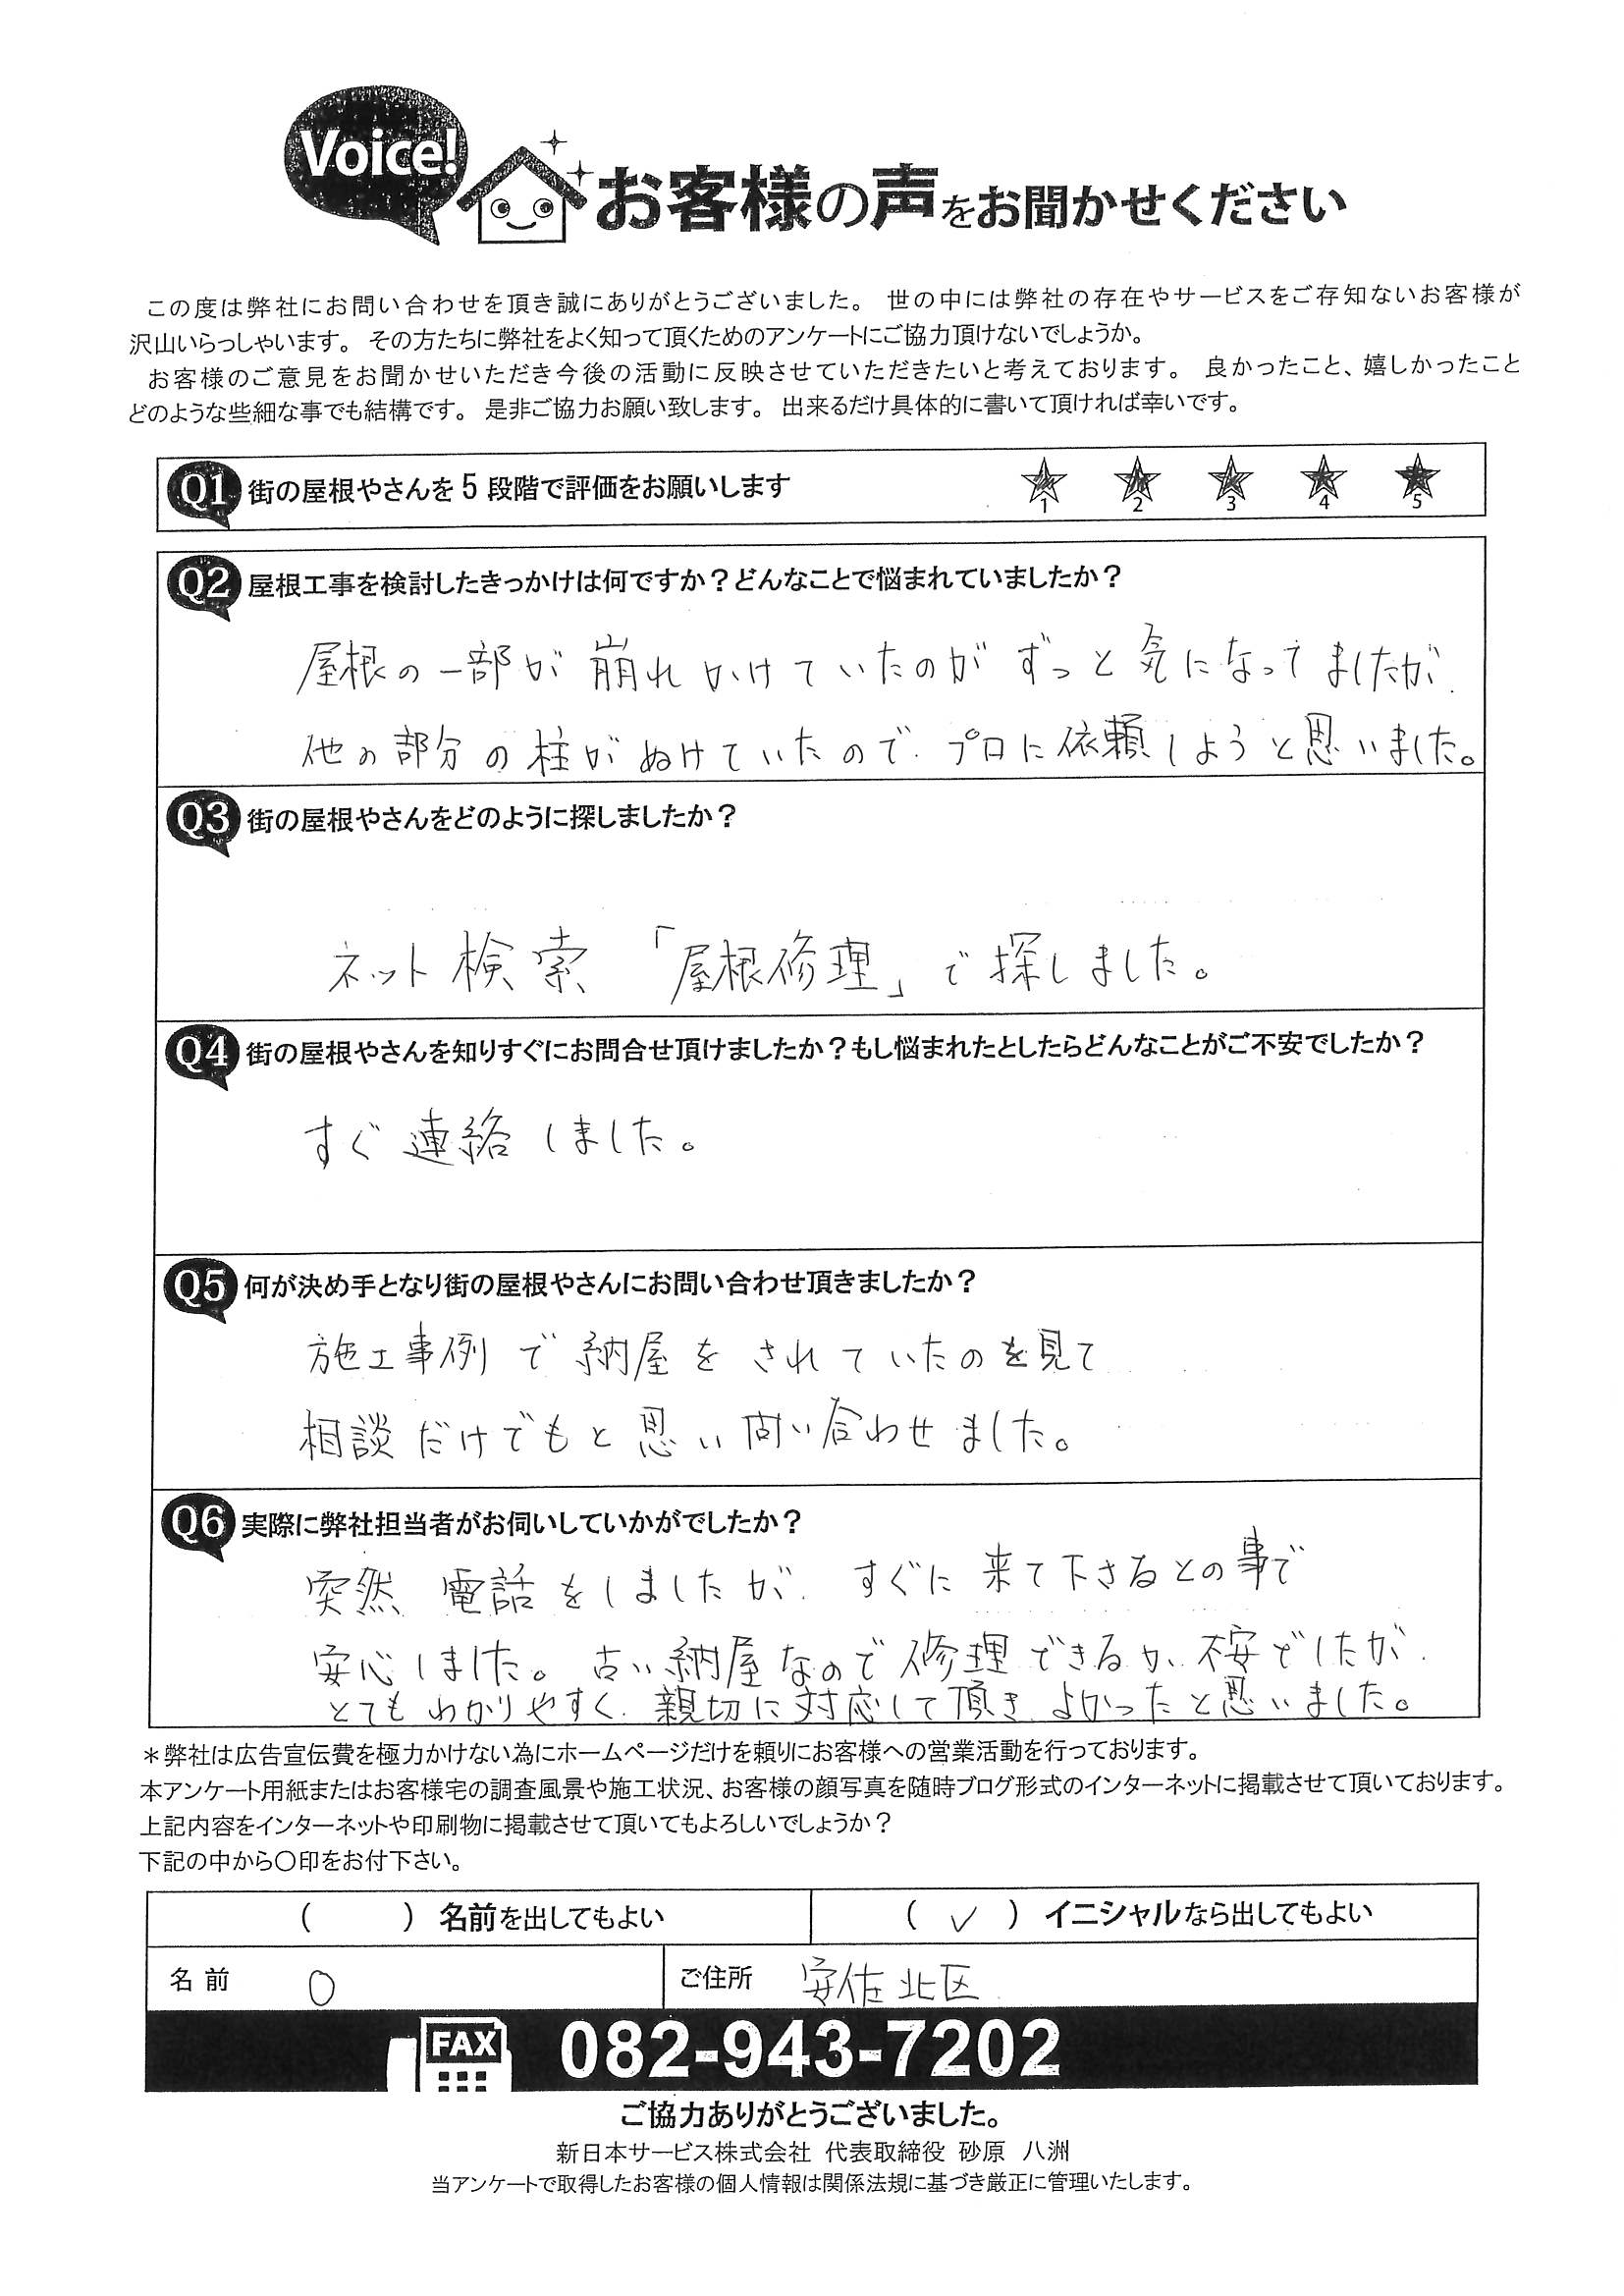 Voice!
お客様の声をお聞かせください
この度は弊社にお問い合わせを頂き誠にありがとうございました。 世の中には弊社の存在やサービスをご存知ないお客様が
沢山いらっしゃいます。 その方たちに弊社をよく知って頂くためのアンケートにご協力頂けないでしょうか。
お客様のご意見をお聞かせいただき今後の活動に反映させていただきたいと考えております。 良かったこと、嬉しかったこと
どのような些細な事でも結構です。 是非ご協力お願い致します。 出来るだけ具体的に書いて頂ければ幸いです。
Q1 街の屋根やさんを5段階で評価をお願いします
1 2 3 4 5
Q2 屋根工事を検討したきっかけは何ですか？どんなことで悩まれていましたか？
屋根の一部が崩れかけていたのがずっと気になってましたが、
他の部分の柱がぬけていたので、プロに依頼しようと思いました。
Q3 街の屋根やさんをどのように探しましたか？
ネット検索「屋根修理」で探しました。
Q4 街の屋根やさんを知りすぐにお問合せ頂けましたか？もし悩まれたとしたらどんなことがご不安でしたか？
すぐ連絡しました。
Q5 何が決め手となり街の屋根やさんにお問い合わせ頂きましたか？
施工事例で納屋をされていたのを見て
相談だけでもと思い問い合わせました。
Q6 実際に弊社担当者がお伺いしていかがでしたか？
突然電話をしましたが、すぐに来て下さるとの事で
安心しました。古い納屋なので修理できるか、不安でしたが、
とてもわかりやすく、親切に対応して頂き、よかったと思いました。
＊弊社は広告宣伝費を極力かけない為にホームページだけを頼りにお客様への営業活動を行っております。
本アンケート用紙またはお客様宅の調査風景や施工状況、お客様の顔写真を随時ブログ形式のインターネットに掲載させて頂いております。
上記内容をインターネットや印刷物に掲載させて頂いてもよろしいでしょうか？
下記の中から〇印をお付下さい。
（　　）名前を出してもよい （ ✓ ）イニシャルなら出してもよい
名前 O ご住所 安佐北区
FAX 082-943-7202
ご協力ありがとうございました。
新日本サービス株式会社 代表取締役 砂原 八洲
当アンケートで取得したお客様の個人情報は関係法規に基づき厳正に管理いたします。